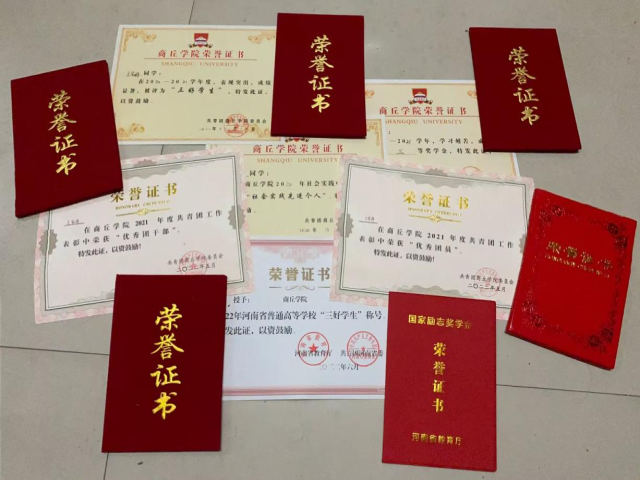 商丘学院荣誉证书
SHANGQIU UNIVERSITY
同学:
学年度,表现突出,成绩
显著,被评为"三好学生",特发此证,
以资鼓励。
荣誉证书
荣誉证书
荣誉证书
商丘学院荣誉证书
SHANGQIU UNIVERSITY
学年,学习
等奖学金,特发此证
商丘学院荣誉证书
SHANGQIU UNIVERSITY
同学:
商丘学院20
年社会实践
"社会实践先进个人"
以资鼓励。
荣誉证书
在商丘学院 2021 年度共青团工作
表彰中荣获"优秀团干部"。
特发此证,以资鼓励!
共青团商丘学院委员会
二〇二二年五月
荣誉证书
在商丘学院 2021 年度共青团工作
表彰中荣获"优秀团员"。
特发此证,以资鼓励!
共青团商丘学院委员会
二〇二二年五月
荣誉证书
荣誉证书
授予:
商丘学院
22年河南省普通高等学校"三好学生"称号,
发此证,以资鼓励。
河南省教育厅
共青团河南省委
二〇二二年六月
荣誉证书
国家励志奖学金
荣誉证书
河南省教育厅